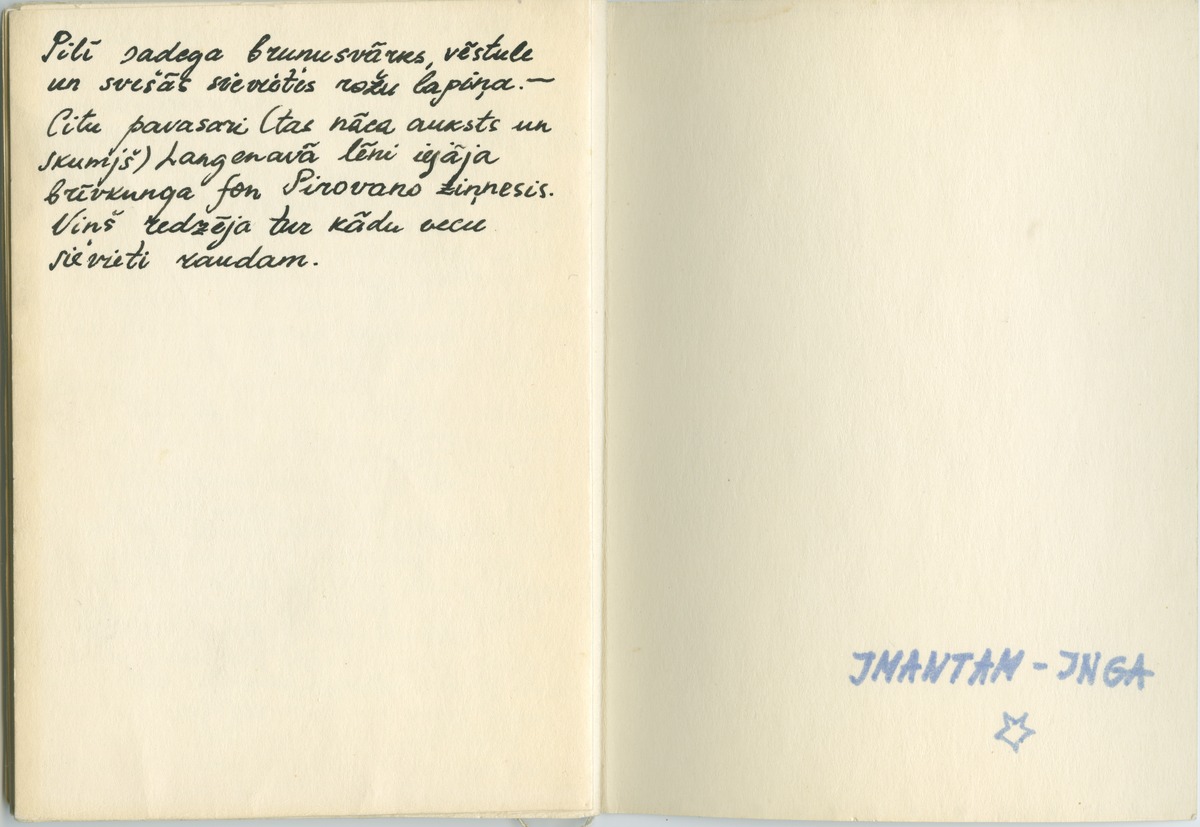 Pilī sadega bruņusvārks, vēstule
un svešās sievietes rožu lapiņa.—
Citu pavasari (tas nāca auksts un
skumjš) Langenavā lēni iejāja
brīvkunga fon Pirovano ziņnesis.
Viņš redzēja tur kādu vecu
sievieti raudam.
IMANTAM - INGA